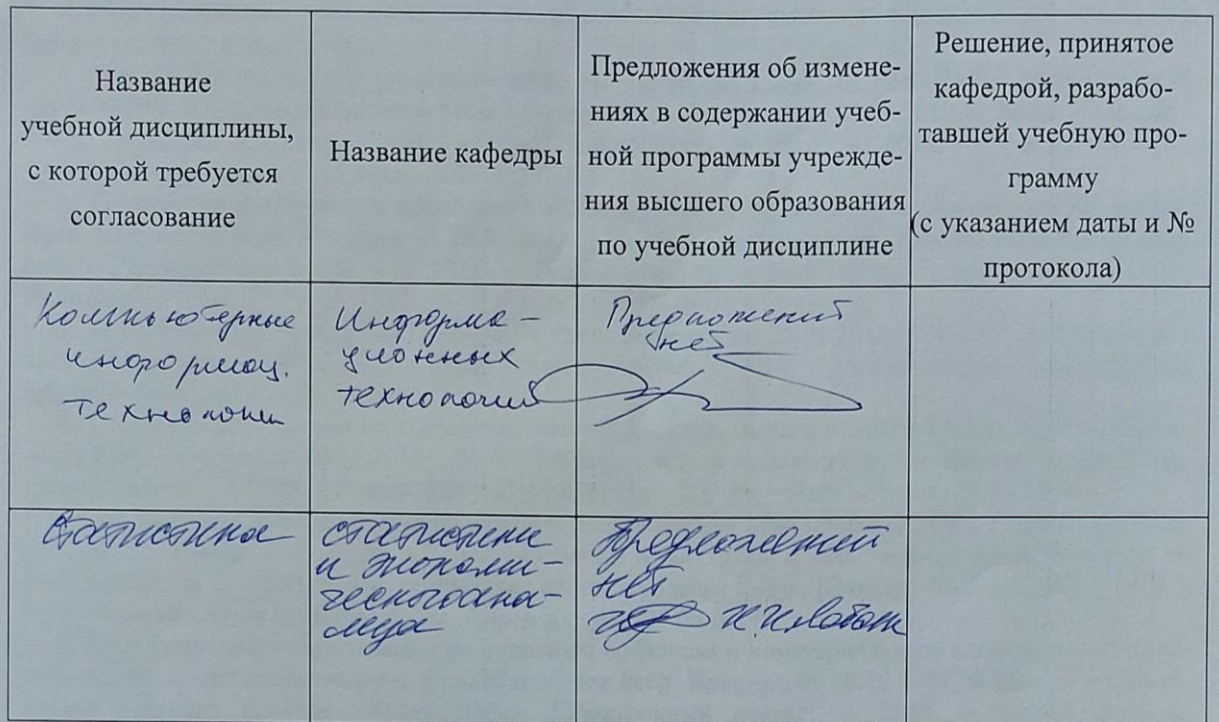 Название
учебной дисциплины,
с которой требуется
согласование
Название кафедры
Предложения об измене-
ниях в содержании учеб-
ной программы учрежде-
ния высшего образования
по учебной дисциплине
Решение, принятое
кафедрой, разрабо-
тавшей учебную про-
грамму
(с указанием даты и №
протокола)
Компьютерные
информац.
технологии
Информа-
ционных
технологий
Предложений
нет
Статистика
статистики
и экономи-
ческого ана-
лиза
Предложений
нет